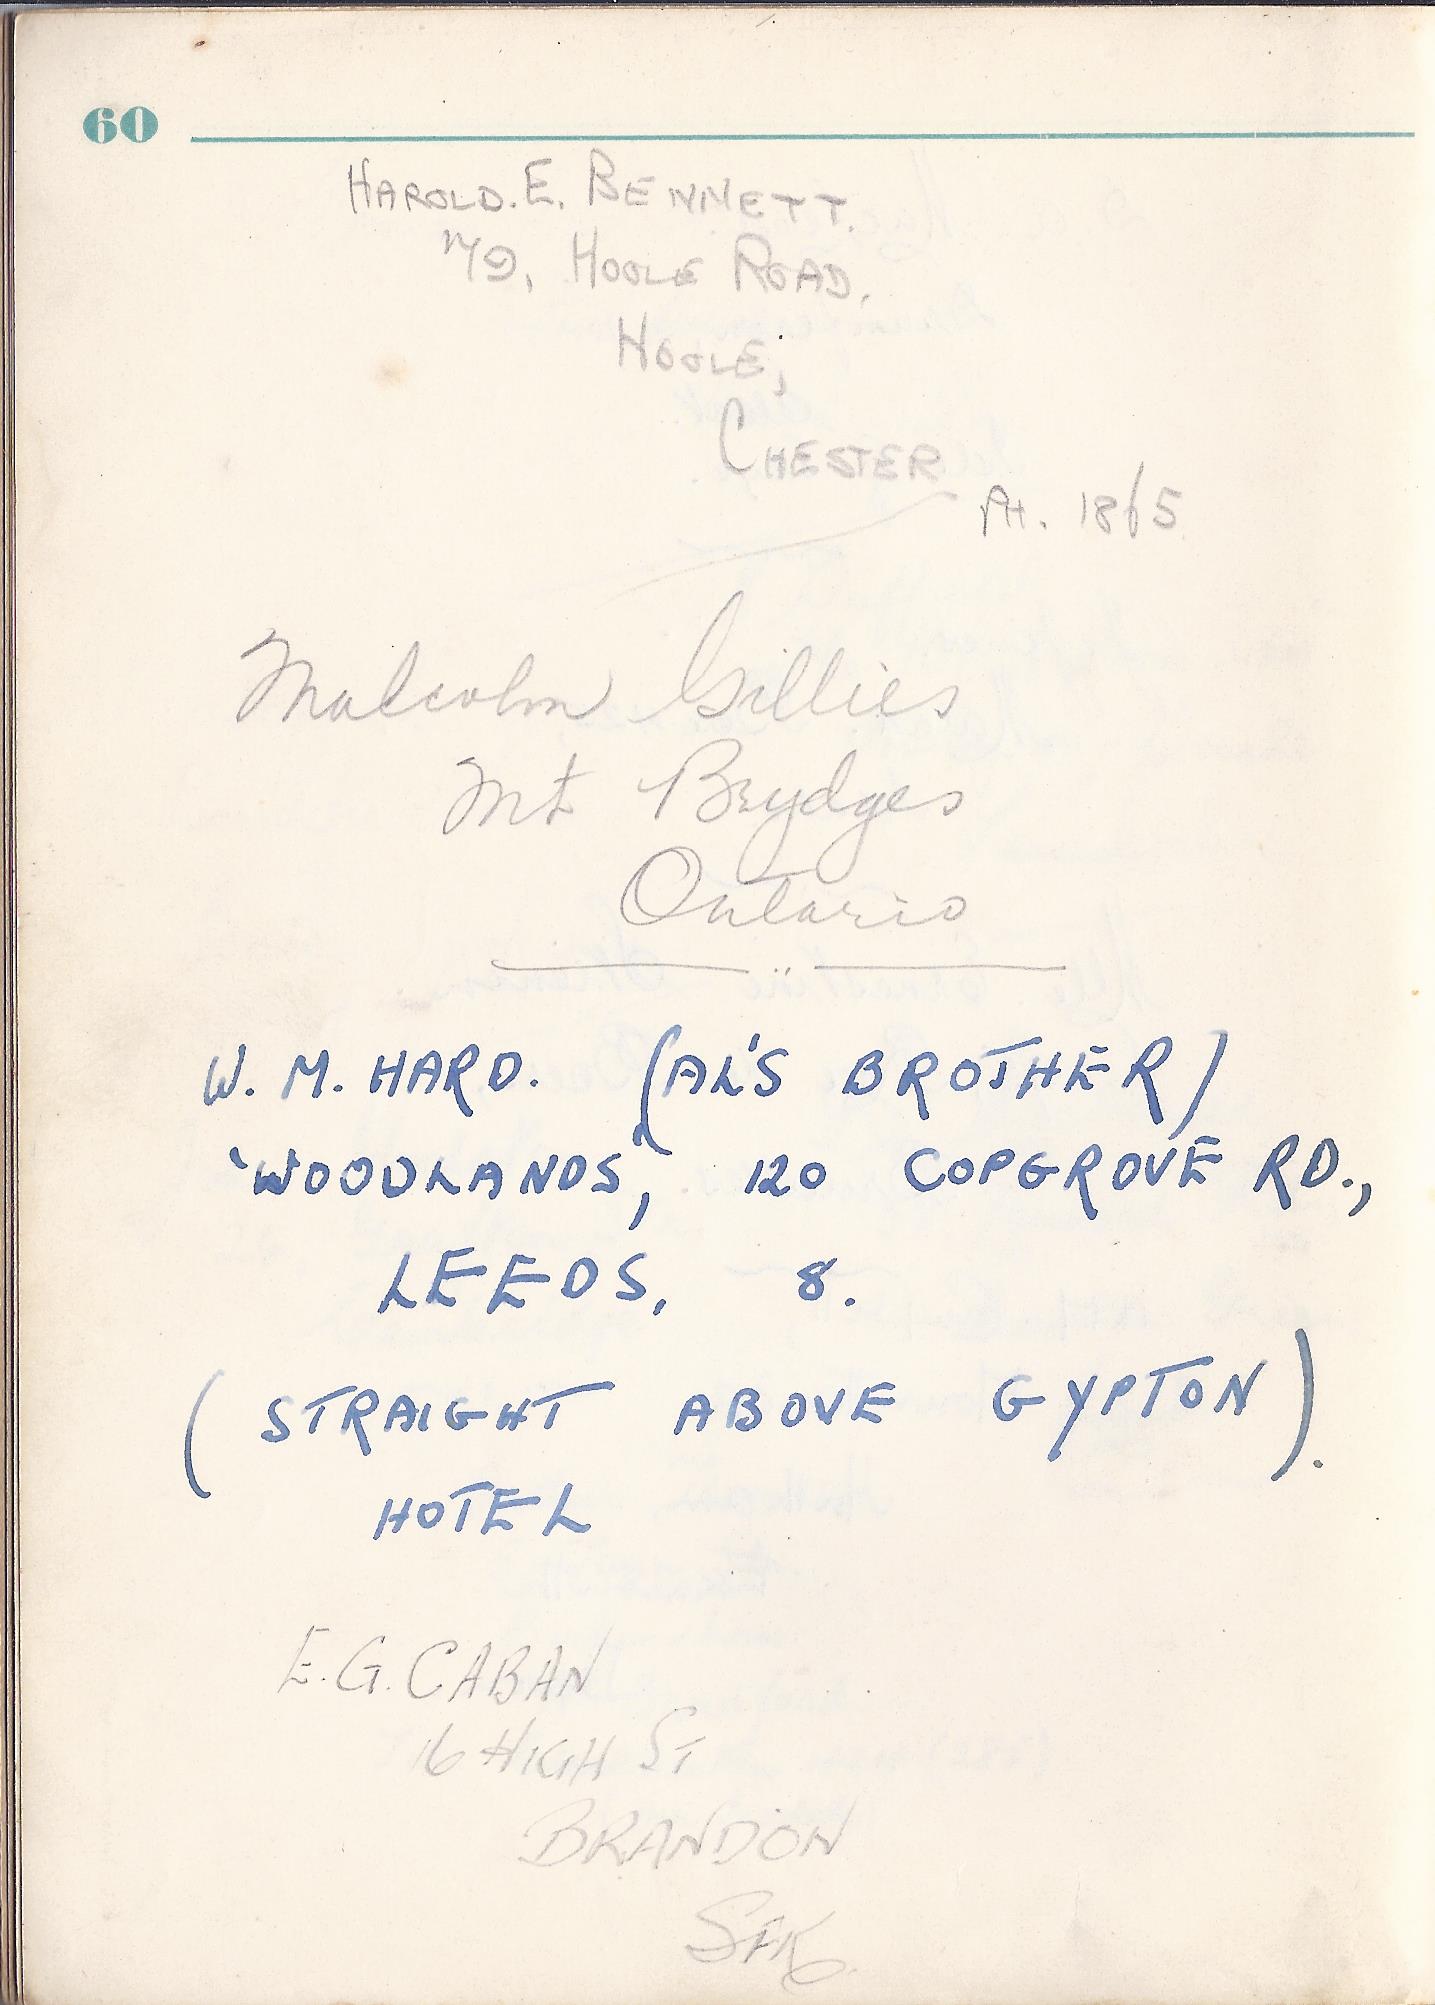 60
HAROLD. E. BENNETT.
79, HOOLE ROAD,
HOOLE,
CHESTER
PH. 1865
Malcolm Gillies
Mt Brydges
Ontario
W. M. HARD. (AL'S BROTHER)
'WOODLANDS', 120 COPGROVE RD.,
LEEDS, 8.
(STRAIGHT ABOVE GYPTON).
HOTEL
E. G. CABAN
16 HIGH ST
BRANDON
SFK.